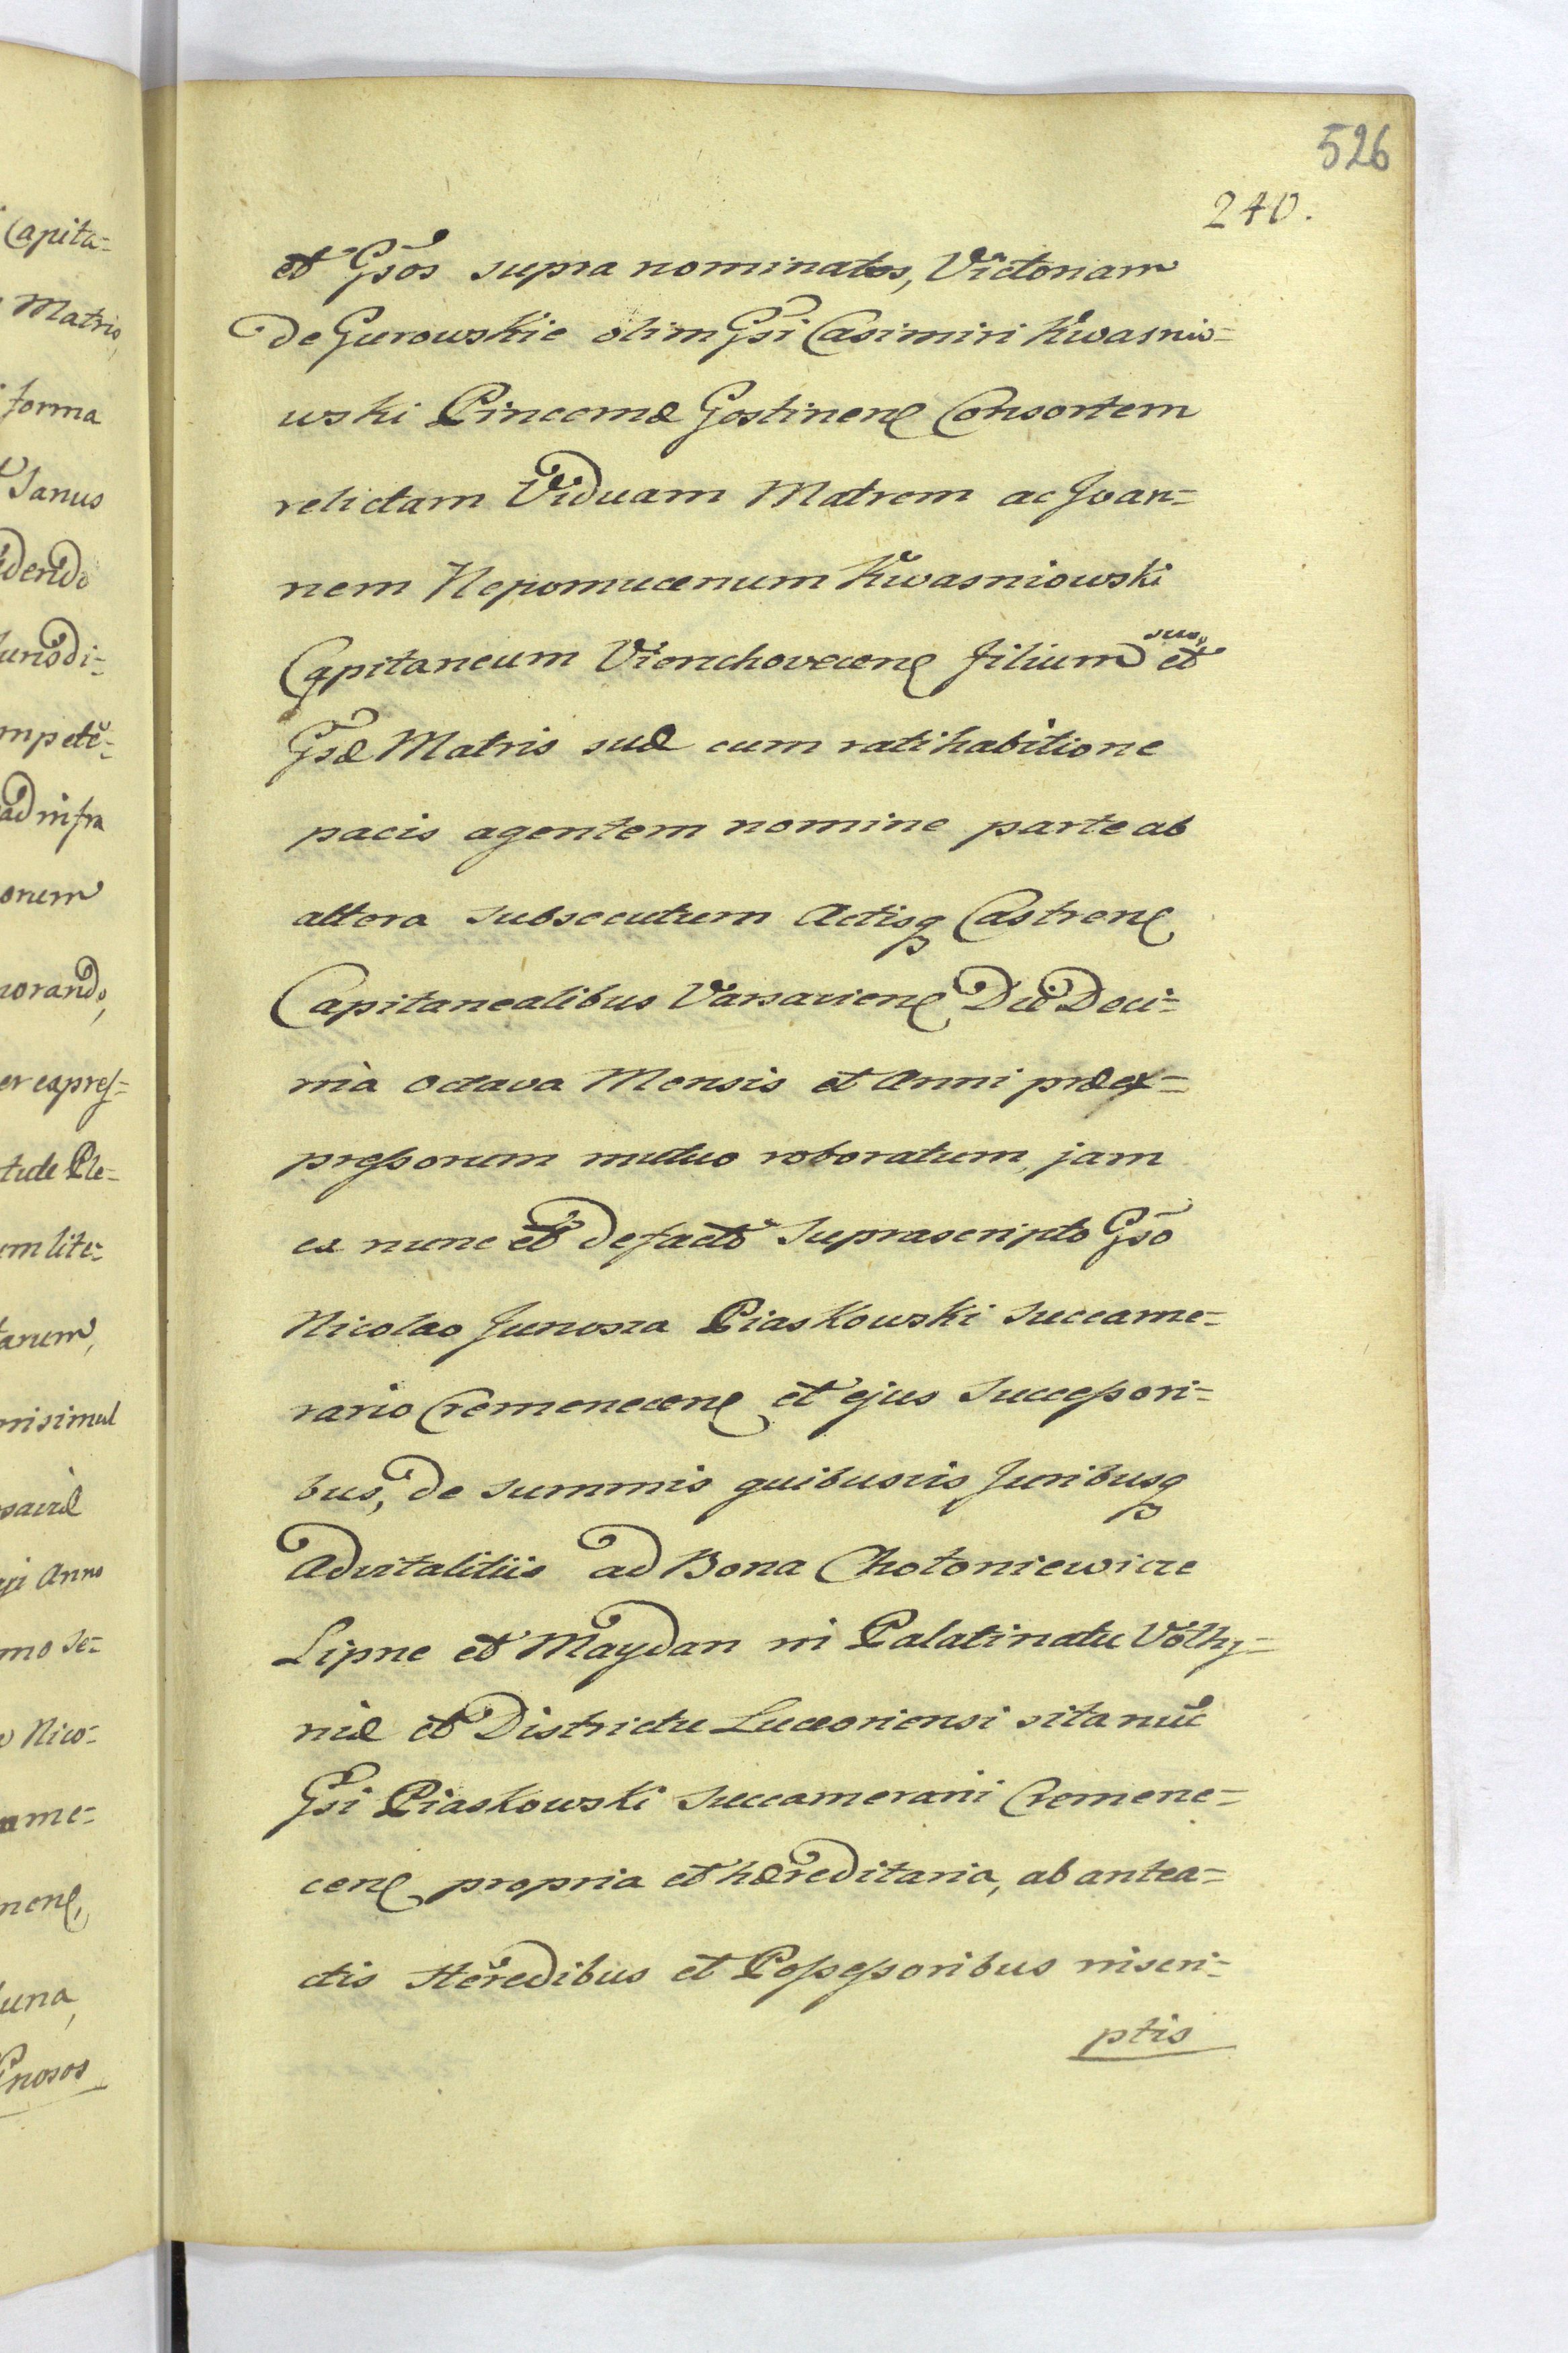 526
240.
et Gsos supra nominatos, Victoriam
de Gurowskie olim Gsi Casimiri Kwasnio=
wski Pincernæ Gostinen Consortem
relictam Viduam Matrem ac Joan=
nem Nepomucenum Kwasniowski
suo,
Capitaneum Filium et
Gsæ Matris suæ cum ratihabitione
pacis agentem nomine parte ab
altera subsecutum Actisq Castren
Capitanealibus Varsavien Die Deci=
ma octava Mensis et Anni præex=
pressorum mutuo roboratum, jam
ex nunc et de facto suprascripto Gso
Nicolao Junosza Piaskowski Succame=
rario Cremenecen et ejus Successori=
bus, de summis quibusvis Juribusq
Advitalitiis ad Bona Chotoniewicze
Lipne et Maydan in Palatinatu Volhy=
niæ et Districtu Luceoriensi sita nunc
Gsi Piaskowski Succamerarii Cremene=
cen propria et hæreditaria, ab antea=
ctis Heredibus et Possessoribus inscri=
ptis
Capita=
Matris,
forma
Janus
idendo
urisdi=
mpete=
ad infra
onem
norando,
er expres=
tude Ple=
um lite=
tarum,
nisimul
saviæ
Anno
mo se=
Nico=
ame=
nen,
una,
Gnosos